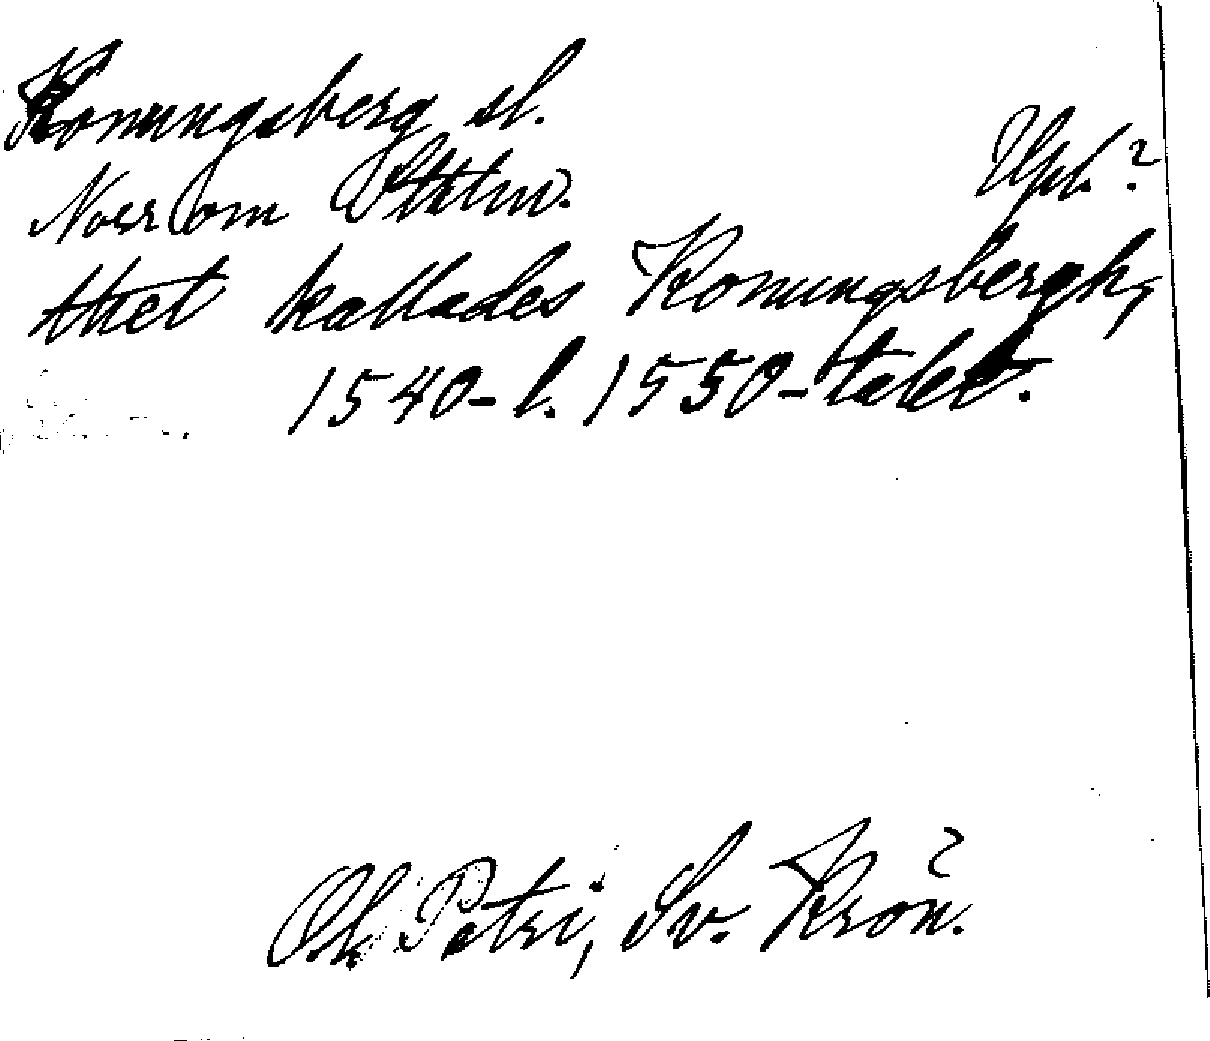 Konungsberg sl.
Norr om Sthlm. Upl.?
thet kallades Konungsbergh,
1540- l. 1550-talet.
Ol. Petri, Sv. Krön.